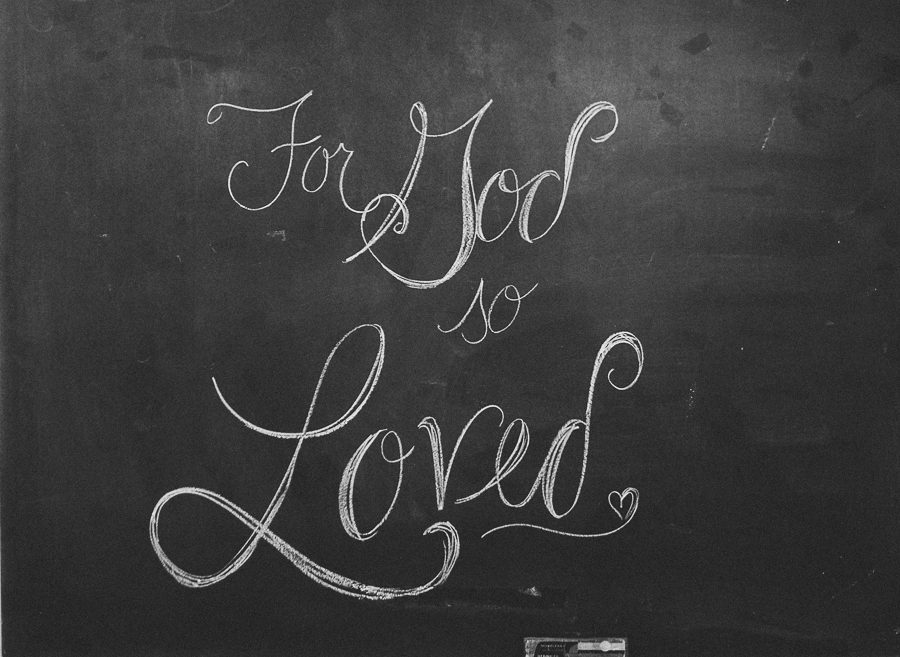 For God
so
Loved